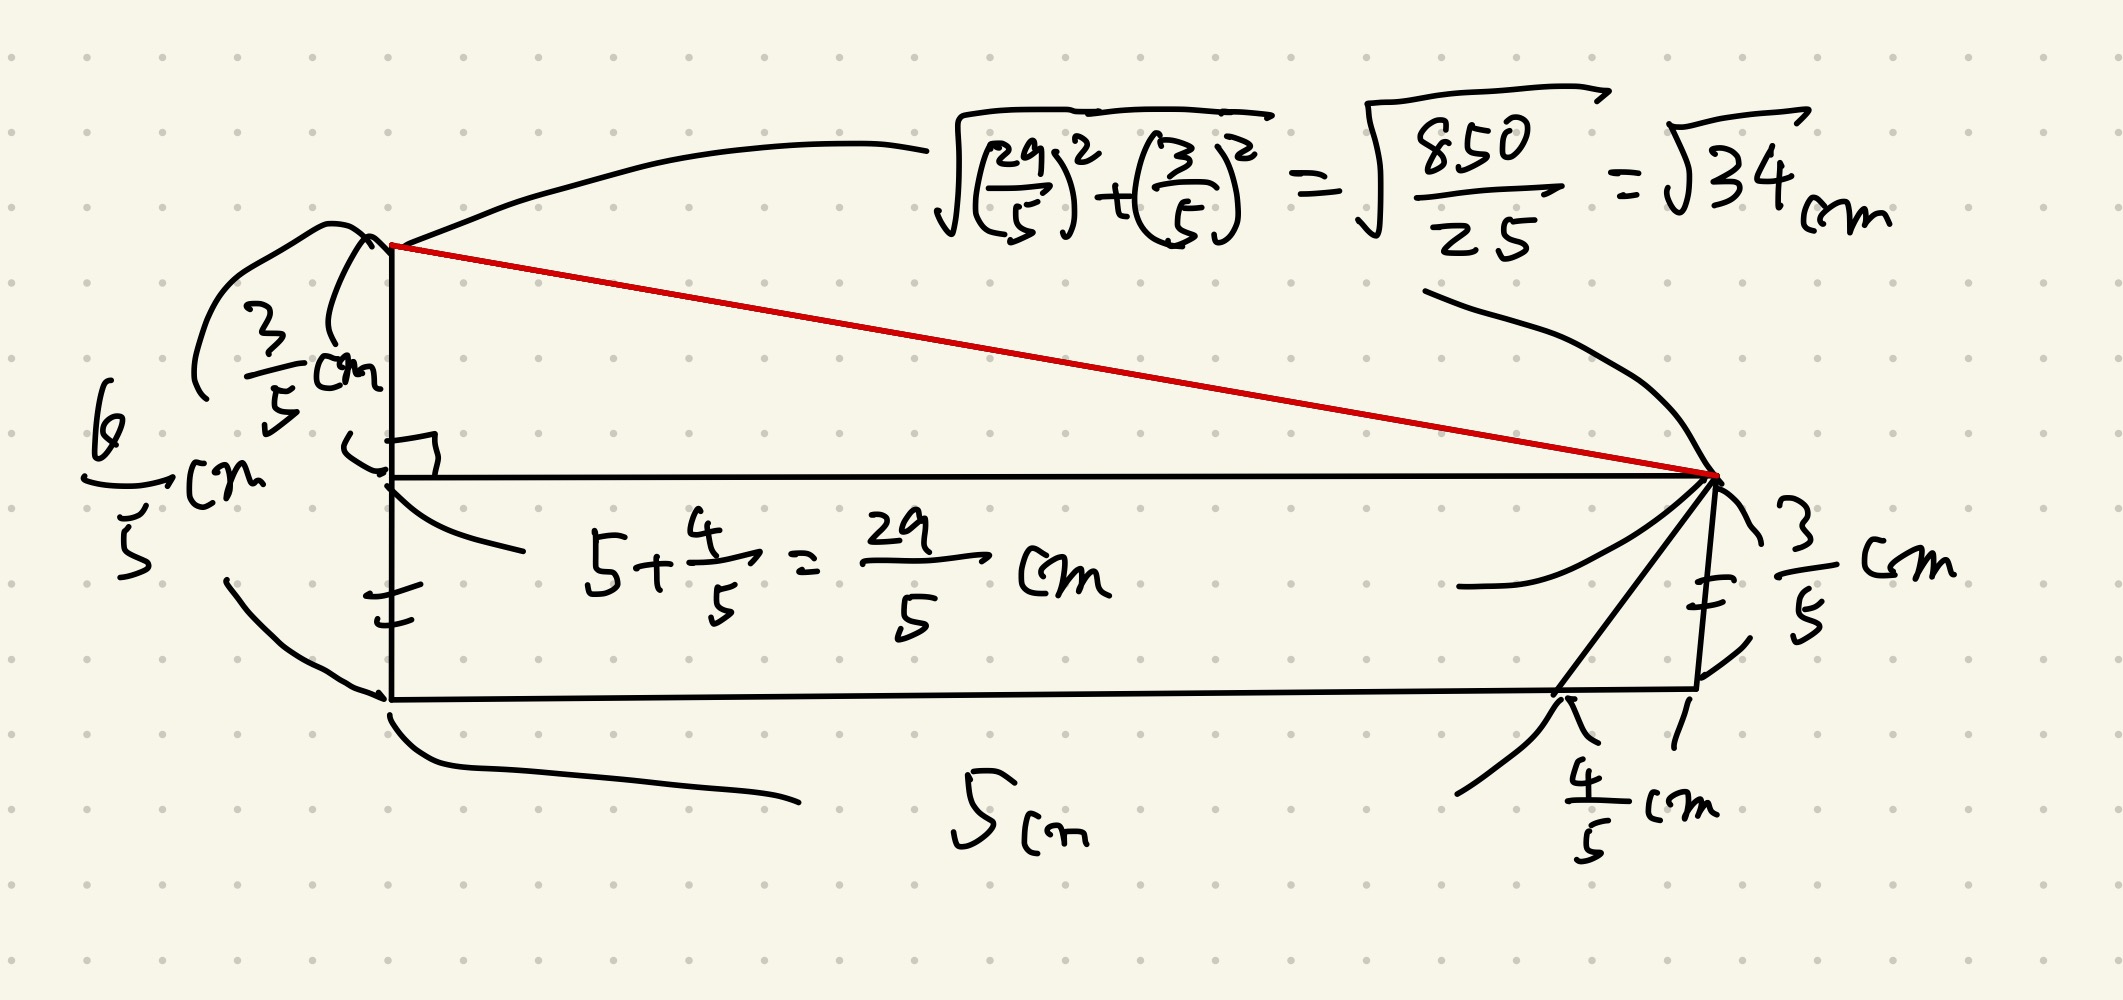 √((29/5)²+(3/5)²) = √(850/25) = √34 cm
3/5 cm
6/5 cm
5+4/5 = 29/5 cm
3/5 cm
4/5 cm
5 cm